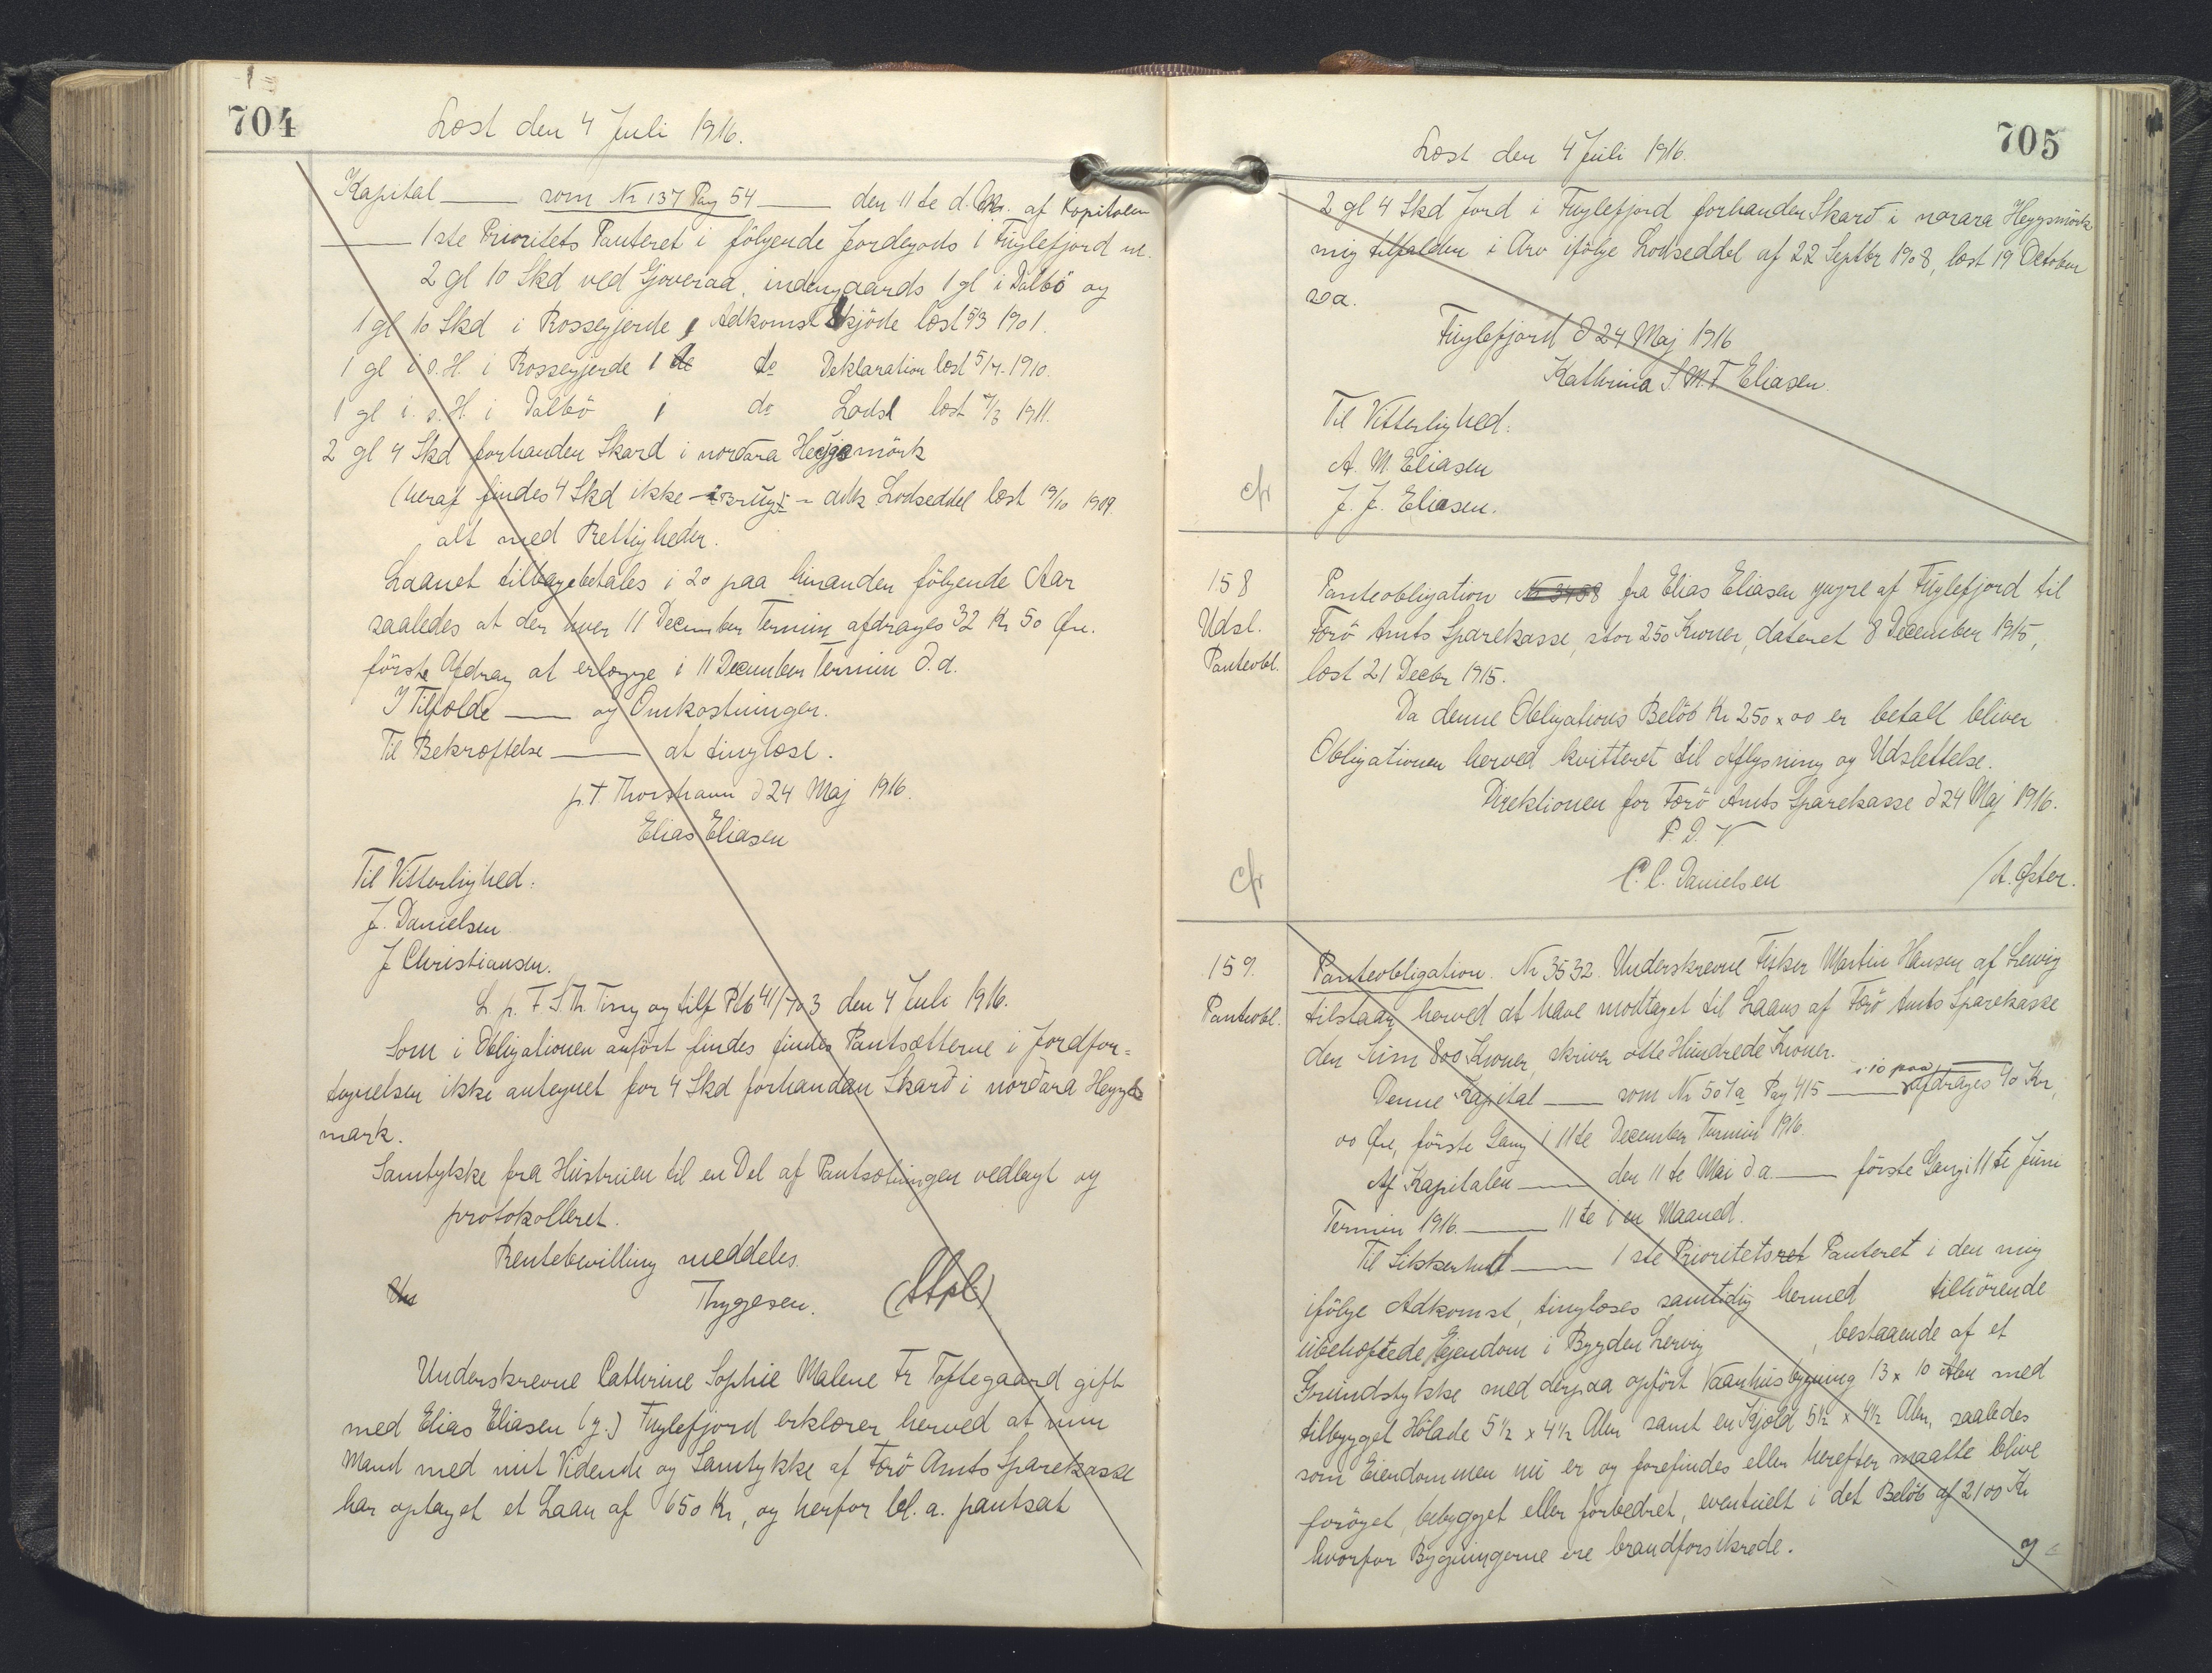 704
Læst den 4 Juli 1916.
Kapital — som Nr 137 Pag 54 — den 11te d. A. af Kapitalen
— 1ste Prioritets Panteret i følgende Jordegods i Fuglefjord nl.
2 gl 10 Skd ved Gjoveraa, indengaards 1 gl i Dalbö og
1 gl 10 Skd i Rossegjerde, Adkomst Skjöde læst 5/3 1901.
1 gl i s. H. i Rossegjerde 1 do do Deklaration læst 5/7 1910.
1 gl i s. H. i Dalbö 1 do Lods læst 7/3 1911.
2 gl 4 Skd forhanden Skard i nordara Heggemörk
(heraf findes 4 Skd ikke - adk Lodseddel læst 19/10 1909.
alt med Rettigheder.
Laanet tilbagebetales i 20 paa hinanden fölgende Aar
saaledes at der hver 11 December Termin afdrages 32 Kr 50 Øre.
förste Afdrag at erlægge i 11 December Termin d. d.
I Tilfælde — og Omkostninger.
Til Bekræftelse — at tinglæse.
p.t Thorshavn d 24 Maj 1916.
Elias Eliasen
Til Vitterlighed:
J. Danielsen
J Christiansen.
L. p. F. S. Th. Ting og tilf Plb 41/703 den 4 Juli 1916.
Som i Obligationen anfört findes findes Pantsætterne i Jordfor=
tegnelsen ikke antegnet for 4 Skd forhandan Skarð i norðara Heggje
mark.
Samtykke fra Hustruen til en Del af Pantsætningen vedlagt og
protokolleret.
Rentebevilling meddeles.
Thygesen. (Stpl.)
Underskrevne Cathrine Sophie Malene Fr Toftegaard gift
med Elias Eliasen (y.) Fuglefjord erklærer herved at min
Mand med mit Vidende og Samtykke af Færö Amts Sparekasse
har optaget et Laan af 650 Kr, og herfor bl. a. pantsat
705
Læst den 4 Juli 1916.
2 gl 4 Skd Jord i Fuglefjord forhanden Skarð i norara Heggsmörk
mig tilfalden i Arv ifölge Lodseddel af 22 Septbr 1908, læst 19 October
s.a.
Fuglefjord d 24 Maj 1916
Kathrina S M. F Eliasen.
Til Vitterlighed:
A. M. Eliasen
cfr
J. J. Eliasen.
158
Udsl.
Panteobl.
Panteobligation Nr 3458 fra Elias Eliasen yngre af Fuglefjord til
Færö Amts Sparekasse, stor 250 Kroner, dateret 8 December 1915,
læst 21 Decbr 1915.
Da denne Obligations Belöb Kr 250 x 00 er betalt bliver
Obligationen herved kvitteret til Aflysning og Udslettelse.
Direktionen for Færö Amts Sparekasse d 24 Maj 1916.
P. D. V
cfr
C. C. Danielsen /A. Øster.
159.
Panteobl.
Panteobligation. Nr 3532. Underskrevne Fisker Martin Hansen af Lervig
tilstaar herved at have modtaget til Laans af Færö Amts Sparekasse
den Sum 800 Kroner, skriver otte Hundrede Kroner.
Denne Kapital — som Nr 507a Pag 415 — i 10 paa — afdrages 40 Kr,
00 Øre, förste Gang i 11te December Termin 1916.
Af Kapitalen — den 11te Mai d.a. — förste Gang i 11te Juni
Termin 1916. — 11te i en Maaned.
Til Sikkerhed — 1ste Prioritetsret Panteret i den mig
ifölge Adkomst, tinglæses samtidig hermed tilhörende
ubehæftede Ejendom i Bygden Lervig, bestaaende af et
Grundstykke med derpaa opfört Vaanhusbygning 13 x 10 Alen med
tilbygget Hölade 5½ x 4½ Alen samt en Kjæld 5½ x 4½ Alen, saaledes
som Eiendommen nu er og forefindes eller herefter maatte blive
foröget, bebygget eller forbedret, eventuelt i det Belöb af 2100 Kr
hvorfor Bygningerne ere brandforsikrede.